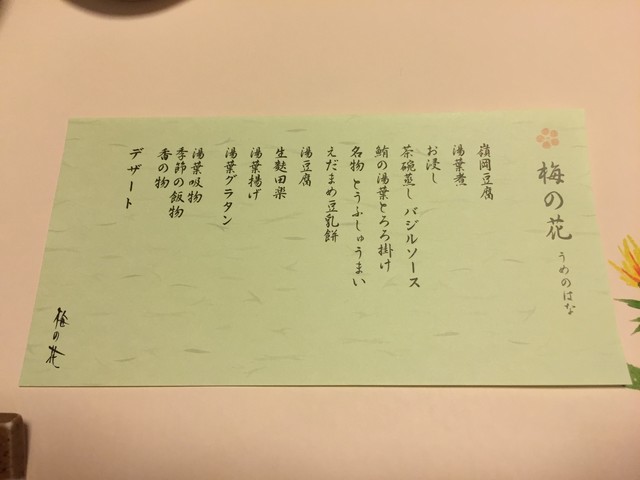 梅の花 うめのはな
嶺岡豆腐
湯葉煮
お浸し
茶碗蒸し バジルソース
鮪の湯葉とろろ掛け
名物 とうふしゅうまい
えだまめ豆乳餅
湯豆腐
生麩田楽
湯葉揚げ
湯葉グラタン
湯葉吸物
季節の飯物
香の物
デザート
梅の花